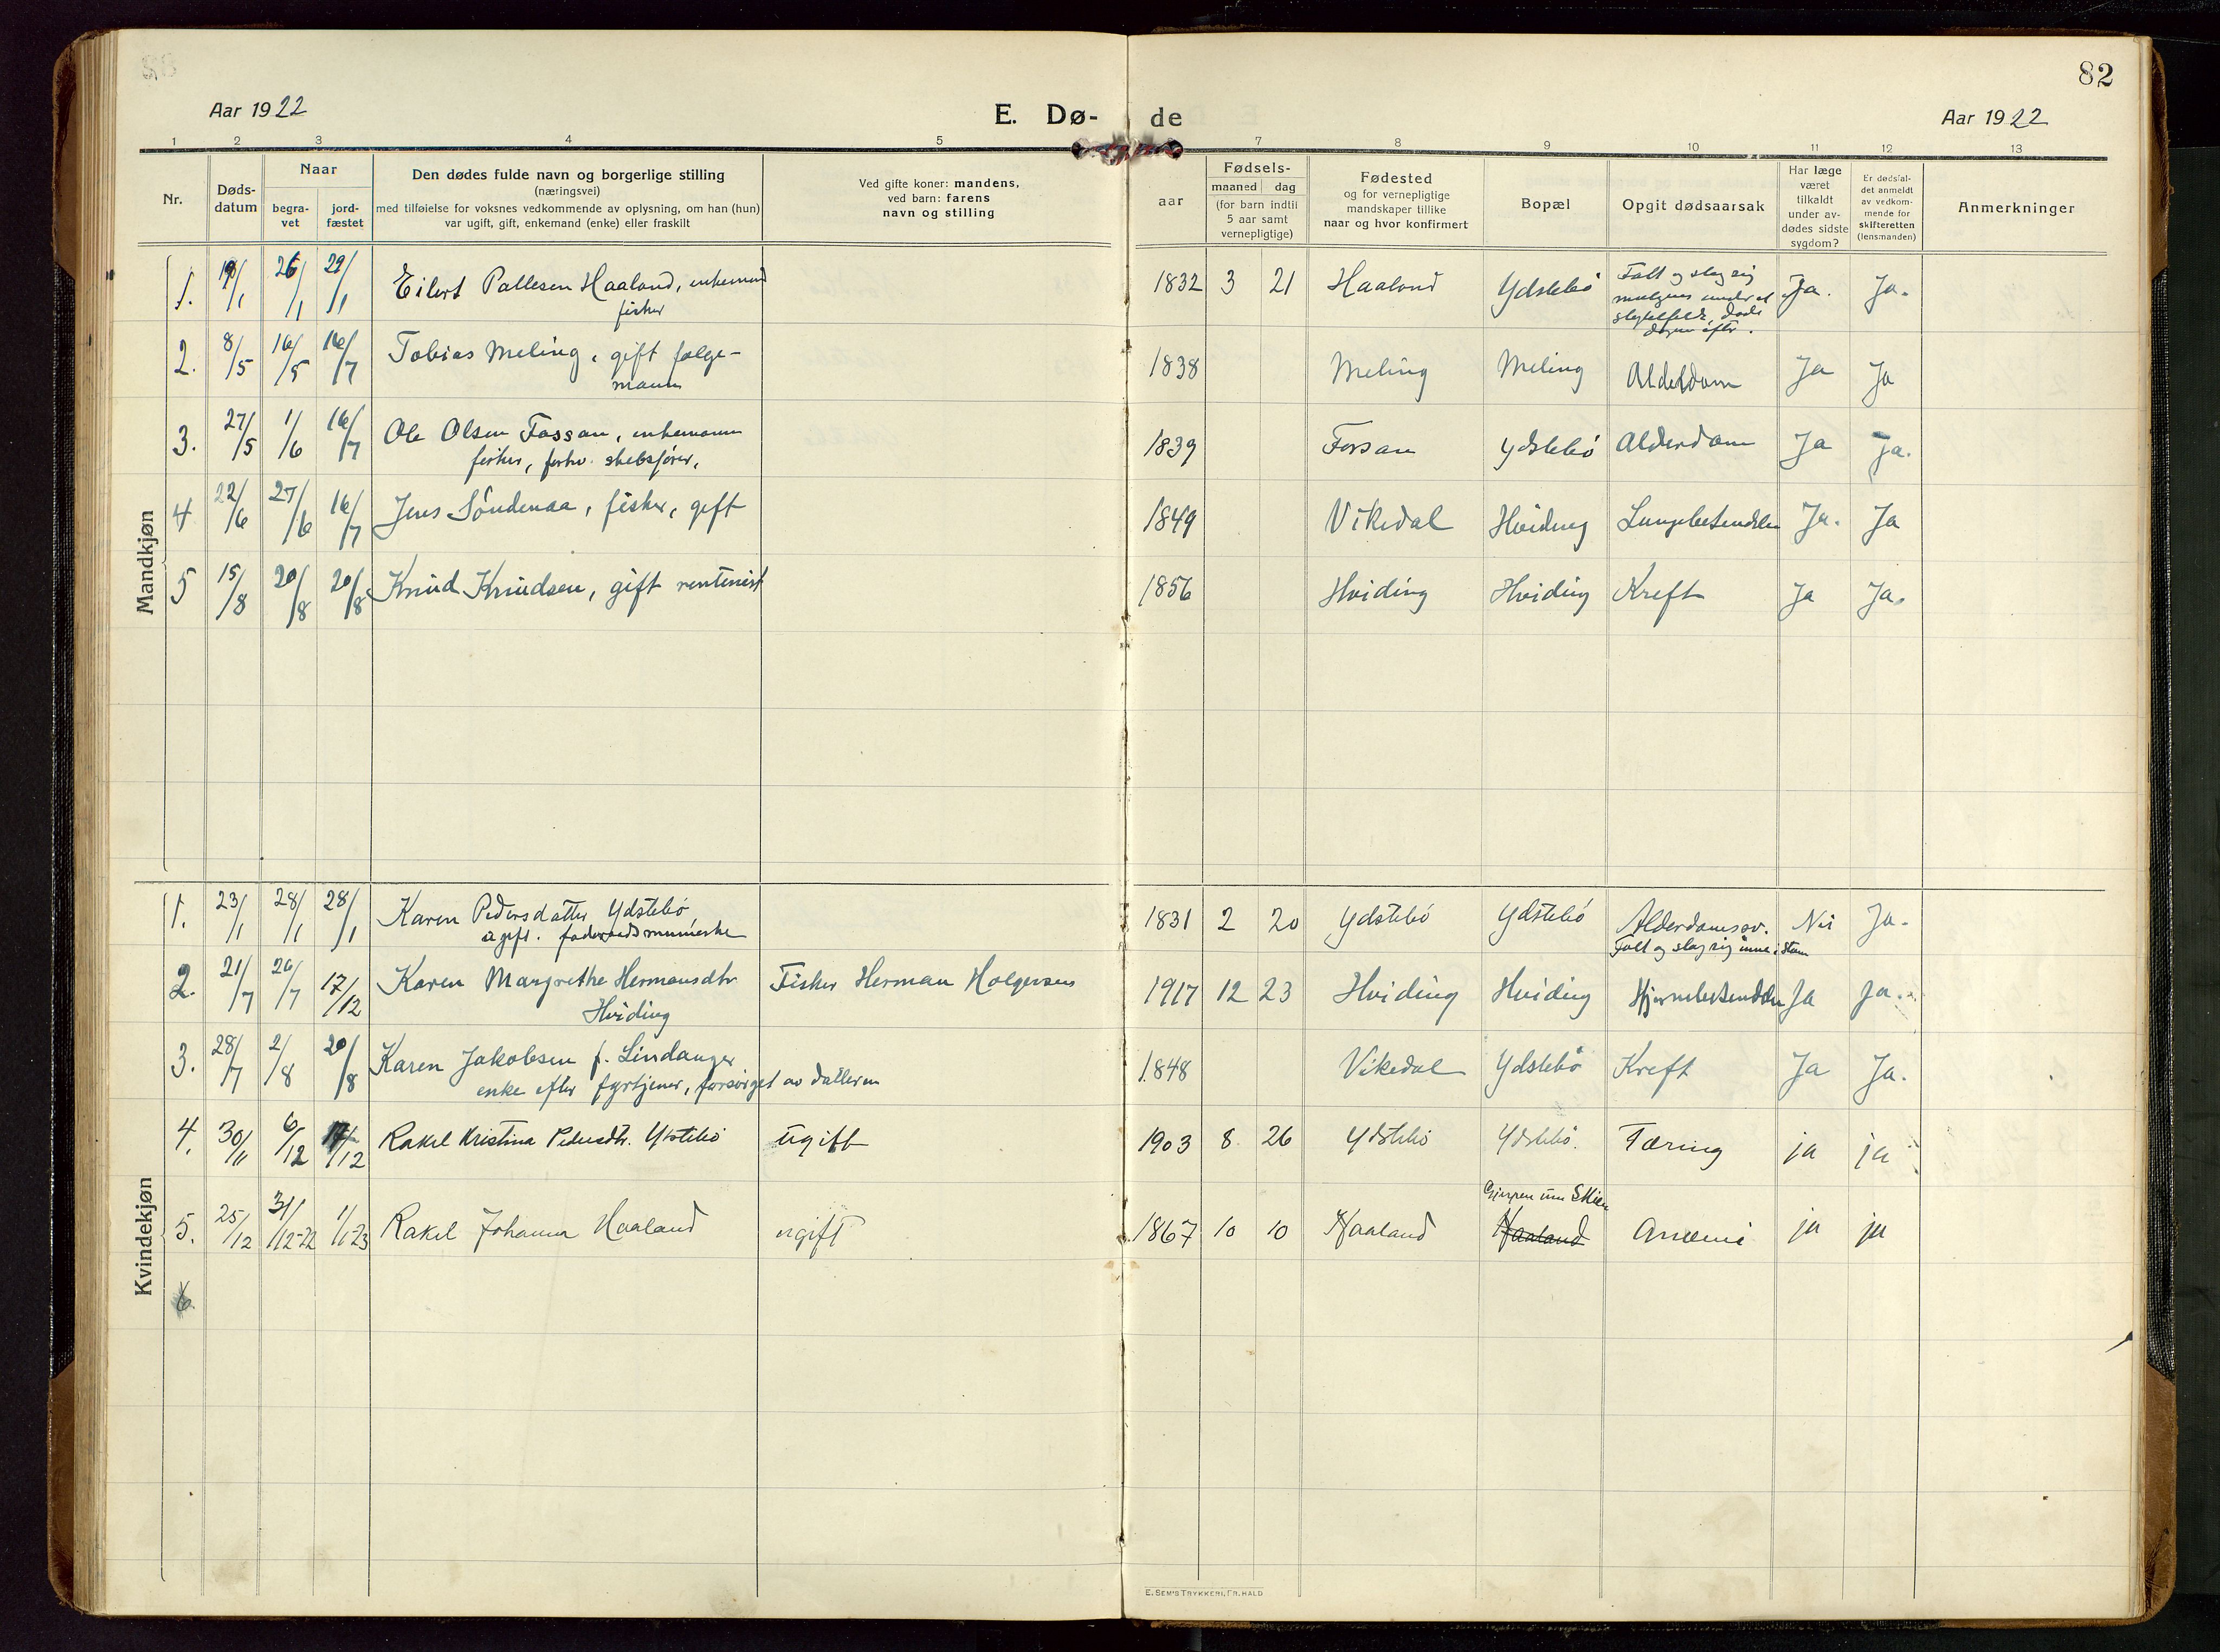 82
Aar 1922
E. Dø-
de
Aar 1922
1 2 3 4 5 7 8 9 10 11 12 13
Nr.
Døds-
datum
Naar
begra-
vet
jord-
fæstet
Den dødes fulde navn og borgerlige stilling
(næringsvei)
med tilføielse for voksnes vedkommende av oplysning, om han (hun)
var ugift, gift, enkemand (enke) eller fraskilt
Ved gifte koner: mandens,
ved barn: farens
navn og stilling
aar
Fødsels-
maaned dag
(for barn indtil
5 aar samt
vernepligtige)
Fødested
og for vernepligtige
mandskaper tillike
naar og hvor konfirmert
Bopæl
Opgit dødsaarsak
Har læge
været
tilkaldt
under av-
dødes sidste
sygdom?
Er dødsfal-
det anmeldt
av vedkom-
mende for
skifteretten
(lensmanden)
Anmerkninger
Mandkjøn
1. 26/1 29/1 Eilert Pallesen Haaland, enkemand 1832 3 21 Haaland Ydstebö Falt og slog sig Ja. Ja.
fisker
döde
dagen efter.
2. 8/5 16/5 16/7 Tobias Meling, gift følge- 1838 Meling Meling Alderdom Ja Ja
mann
3. 27/5 1/6 16/7 Ole Olsen Fossan, enkemann 1839 Forsan Ydstebö Alderdom Ja Ja.
fisker, forhv. skibsfører,
4 22/6 27/6 16/7 Jens Söndenaa, fisker, gift 1849 Vikedal Hviding Lungebetendelse Ja. Ja
5 15/8 20/8 20/8 Knud Knudsen, gift rentenist 1856 Hviding Hviding Kreft Ja Ja.
Kvindekjøn
1. 23/1 28/1 28/1 Karen Pedersdatter Ydstebö, 1831 2 20 Ydstebö Ydstebö Alderdomssv. Nei Ja.
ugift. föderaadsmenneske Falt og slog sig inne i stuen
2. 21/7 26/7 17/12 Karen Margrethe Hermansdtr Fisker Herman Holgersen 1917 12 23 Hviding Hviding Hjernebetendelse Ja Ja.
Hviding
3. 28/7 2/8 20/8 Karen Jakobsen f. Lindanger 1848 Vikedal Ydstebö Kreft Ja Ja.
enke efter fyrtjener, forsörget av datteren
4. 30/11 6/12 17/12 Rakel Kristina Pedersdtr. Ydstebö ugift 1903 8 26 Ydstebö Ydstebö. Tæring ja ja
Gjerpen inn Skien
5. 25/12 31/12-22 1/1-23 Rakel Johanna Haaland ugift 1867 10 10 Haaland Haaland Anæmi ja ja
6.
E. SEM'S TRYKKERI, FR.HALD